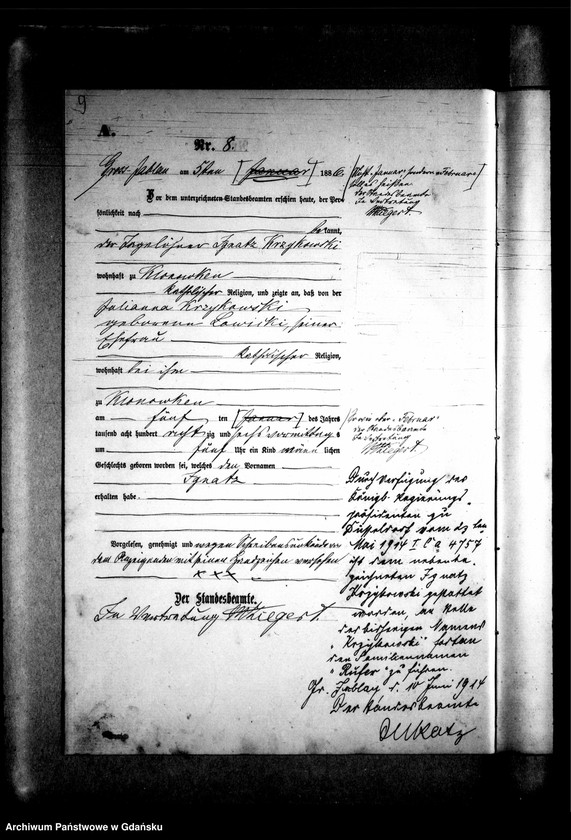 9
A.
Nr. 8.
Gross Jablau am 5ten [Januar] 1886.
[Nicht Januar, sondern Februar]
soll es heißen
der Standesbeamte
In Vertretung
Vor dem unterzeichneten Standesbeamten erschien heute, der Per-
sönlichkeit nach
be kannt,
der Tagelöhner Ignatz Krzykowski
wohnhaft zu Klonowken
katholischer Religion, und zeigte an, daß von der
Julianna Krzykowski
geborene Lowicki, seiner
Ehefrau
katholischer Religion,
wohnhaft bei ihm
zu Klonowken
am fünf ten [Januar] des Jahres
tausend acht hundert acht zig und sechs Vormittag s
um fünf Uhr ein Kind männ lichen
Geschlechts geboren worden sei, welches den Vornamen
Ignatz
erhalten habe
Vorgelesen, genehmigt und wegen Schreibensunkunde von
dem Anzeigenden mit seinen Handzeichen versehen
x x x
Der Standesbeamte.
In Vertretung
Februar
der Standesbeamte
In Vertretung
Durch Verfügung des
Königl. Regierungs-
präsidenten zu
Düsseldorf vom
Mai 1914 I C a 4757
ist dem nebenbe-
zeichneten Ignatz
Krzykowski gestattet
worden, an Stelle
des bisherigen Namens
"Krzykowski" fortan
den Familiennamen
"Rufer" zu führen.
Gr. Jablau d. 10 Juni 1914
Der Standesbeamte
Archiwum Państwowe w Gdańsku